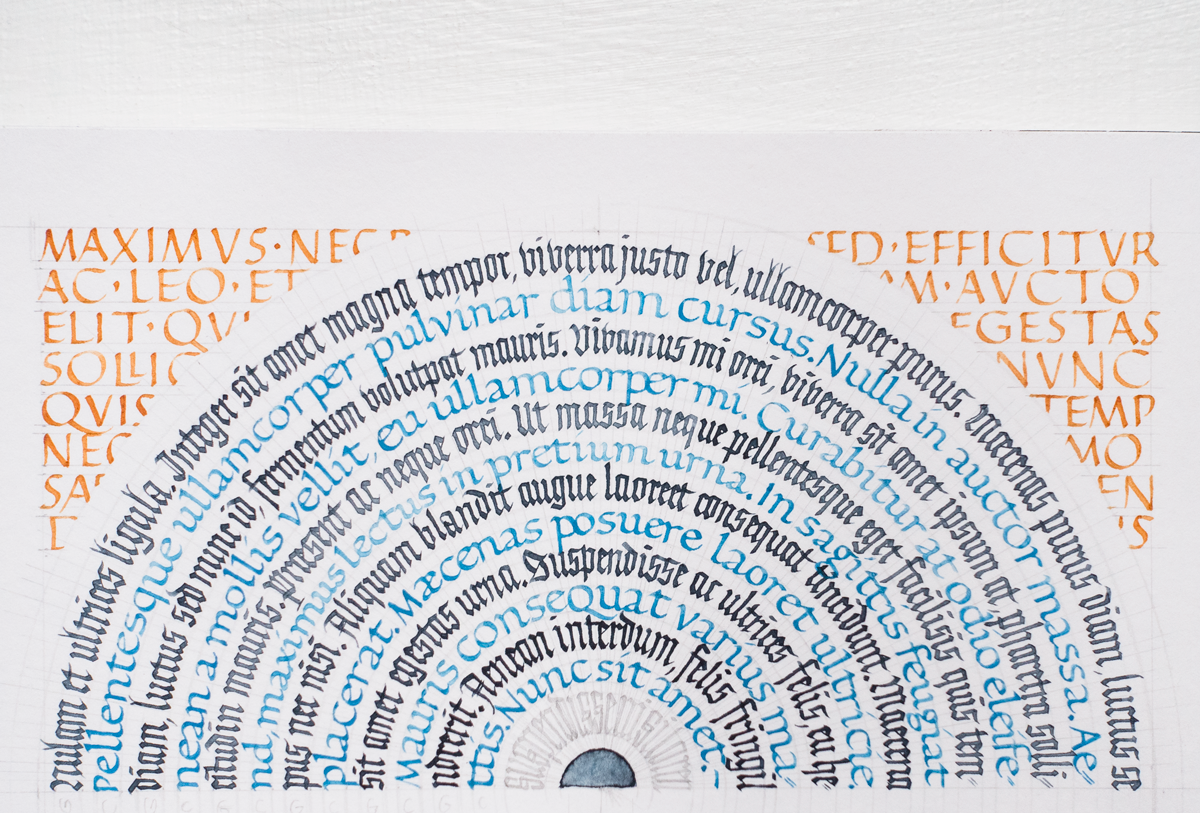 MAXIMVS·NEC
AC·LEO·ET
ELIT·QVI
SOLLIC
QVIS
NEC
SA
T
SED·EFFICITVR
M·AVCTO
EGESTAS
NVNC
TEMP
MO
EN
S
nulam et ultrices ligula. Integer sit amet magna tempor, viverra justo vel, ullamcorper purus. Maecenas purus diam, luctus se
pellentesque ullamcorper pulvinar diam cursus. Nulla in auctor massa. Ae-
diam, luctus sed nunc id, fermentum volutpat mauris. Vivamus mi orci, viverra sit amet ipsum at pharetra solli-
nean a mollis vellit, eu ullamcorper mi. Curabitur at odio eleife-
citudin mauris. praesent ac neque orci. Ut massa neque pellentesque eget facilisis quis tem-
nd, maximus lectus in pretium urna. In sagittis feugiat
pus nec nisi. Aliquam blandit augue laoreet consequat tincidunt. Maecena
placerat. Mæcenas posuere laoret ultriche.
sit amet egestas urna. Suspendisse ac ultrices felis eu he
Mauris consequat varius ma-
ndrerit. Aenean interdum, felis fringil
ttis. Nunc sit amet.-